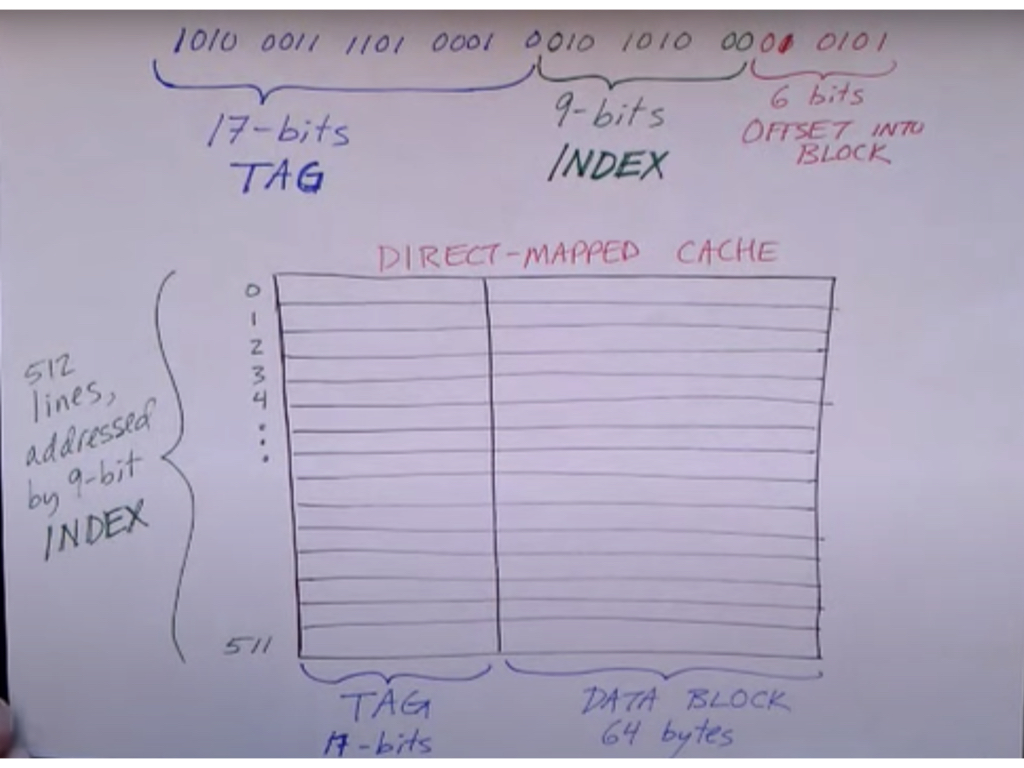 1010 0011 1101 0001 0010 1010 0000 0101
17-bits
TAG
9-bits
INDEX
6 bits
OFFSET INTO
BLOCK
DIRECT-MAPPED CACHE
0
1
2
3
4
511
512
lines,
addressed
by 9-bit
INDEX
TAG
17-bits
DATA BLOCK
64 bytes